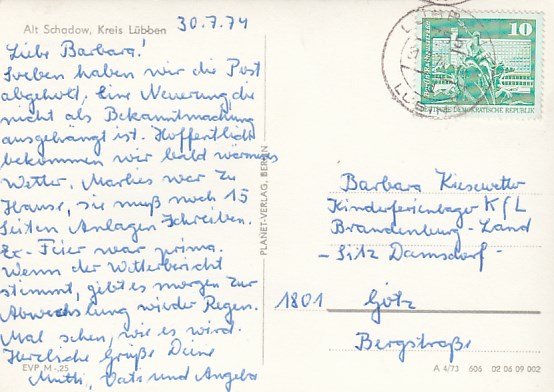 Alt Schadow, Kreis Lübben
30.7.74
Liebe Barbara!
Soeben haben wir die Post
abgeholt, eine Neuerung die
nicht als Bekanntmachung
ausgehängt ist. Hoffentlich
bekommen wir bald warmes
Wetter, Marlies war zu
Hause, sie muß noch 15
Seiten Anlagen schreiben.
Ex-Feier war prima.
Wenn der Wetterbericht
stimmt, gibt es morgen zur
Abwechslung wieder Regen.
Mal sehen, wie es wird.
Herzliche Grüße Deine
Mutti, Vati und Angela
EVP M -,25
PLANET-VERLAG, BERLIN
10
DEUTSCHE DEMOKRATISCHE REPUBLIK
Barbara Kiesewetter
Kinderferienlager KfL
Brandenburg-Land
- Sitz Damsdorf -
1801 Götz
Bergstraße
A 4/73 506 02 06 09 002